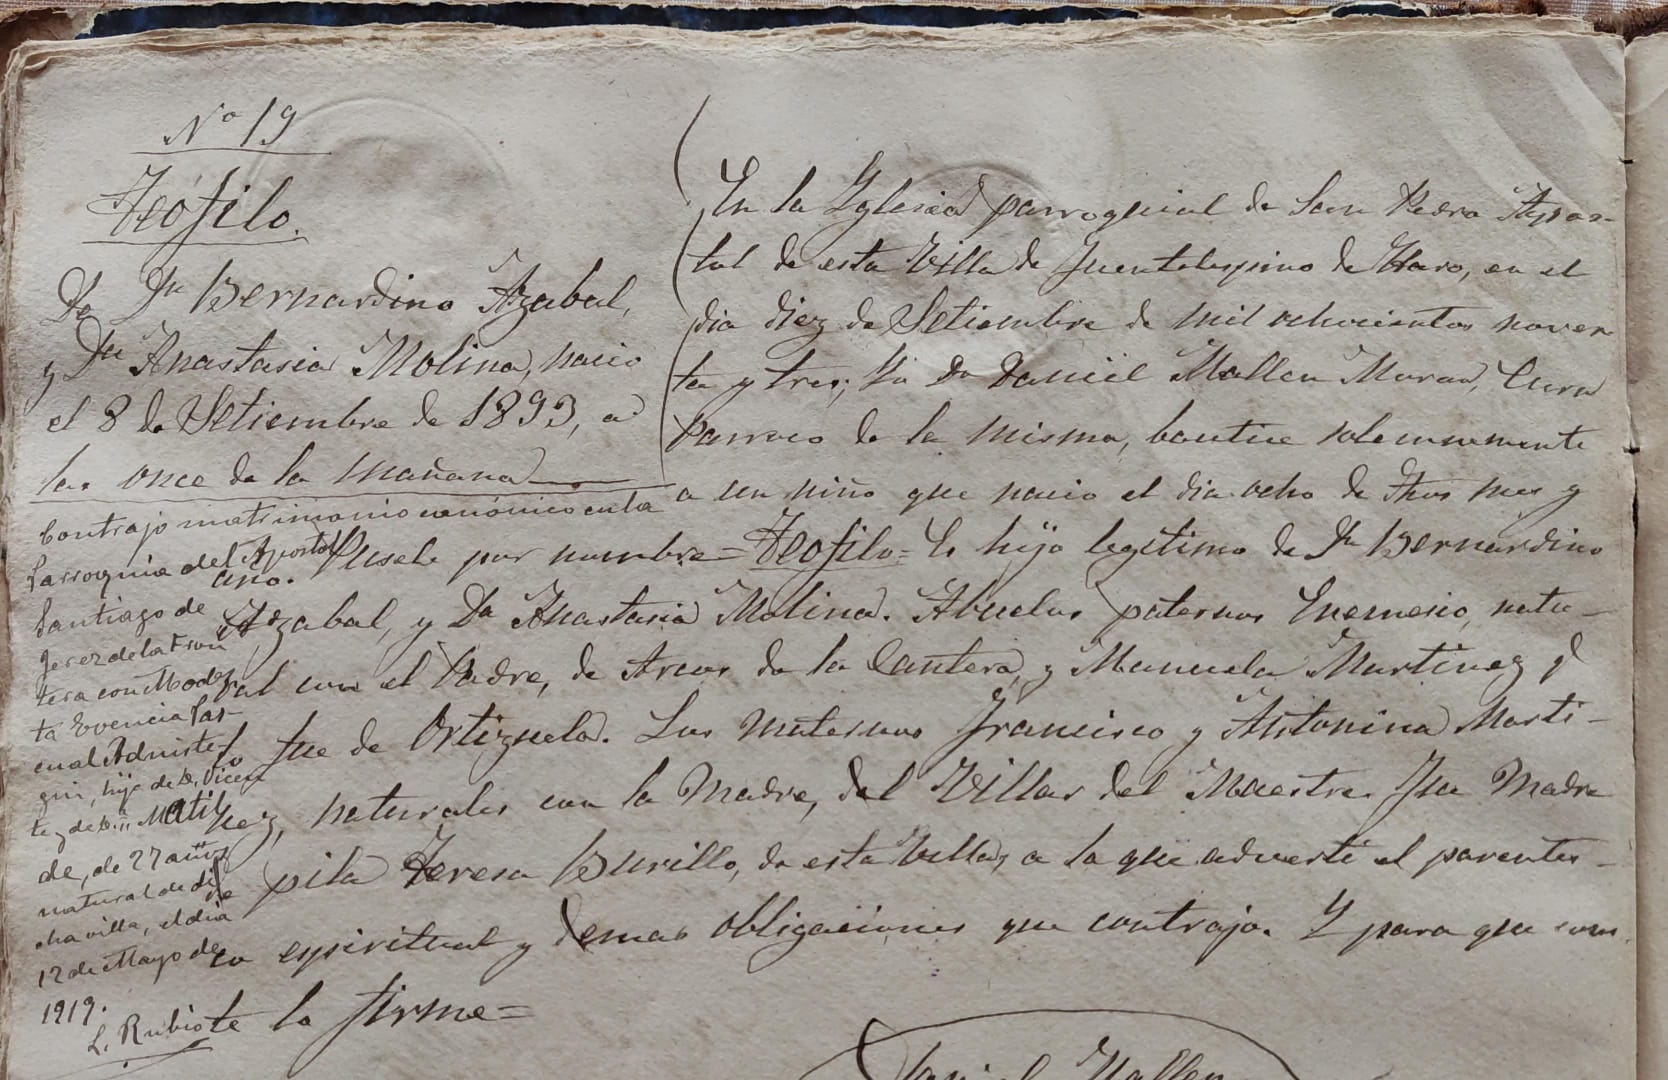 Nº 19
Teofilo.
De Dn Bernardino Azabal,
y Dña Anastasia Molina, nacio
el 8 de Setiembre de 1893, a
las once de la mañana
Contrajo matrimonio canónico en la
Parroquia del Apostol
Santiago de
Jerez de la Fron
tera con Modes
ta Evencia Pas
cual
hija de D. Vicen
te y de D.ª Matil
de, de 27 años
natural de di
cha villa, el dia
12 de Mayo de
1919.
L. Rubio
En la Yglesia parroquial de San Pedro Apos-
tol de esta Villa de Fuentelespino de Haro, en el
dia diez de Setiembre de mil ochocientos noven
ta y tres; Yo Dn Daniel Mallen Cura
Parroco de la misma, bautice solemnemente
a un niño que nacio el dia ocho de dhos mes y
año. Pusele por nombre = Teofilo = Es hijo legitimo de Dn Bernardino
Azabal, y Da Anastasia Molina. Abuelos paternos natu-
ral con el Padre, de Arcos de la Cantera, y Manuela Martinez q
lo fue de Ortizuela. Los maternos Francisco y Antonina Marti-
nez, naturales con la Madre, del Villar del Maestre. Fue Madre
de pila Teresa Burillo, de esta Villa, a la que adverti el parentes-
co espiritual y demas obligaciones que contrajo. Y para que cons
te lo firme =
Daniel Mallen